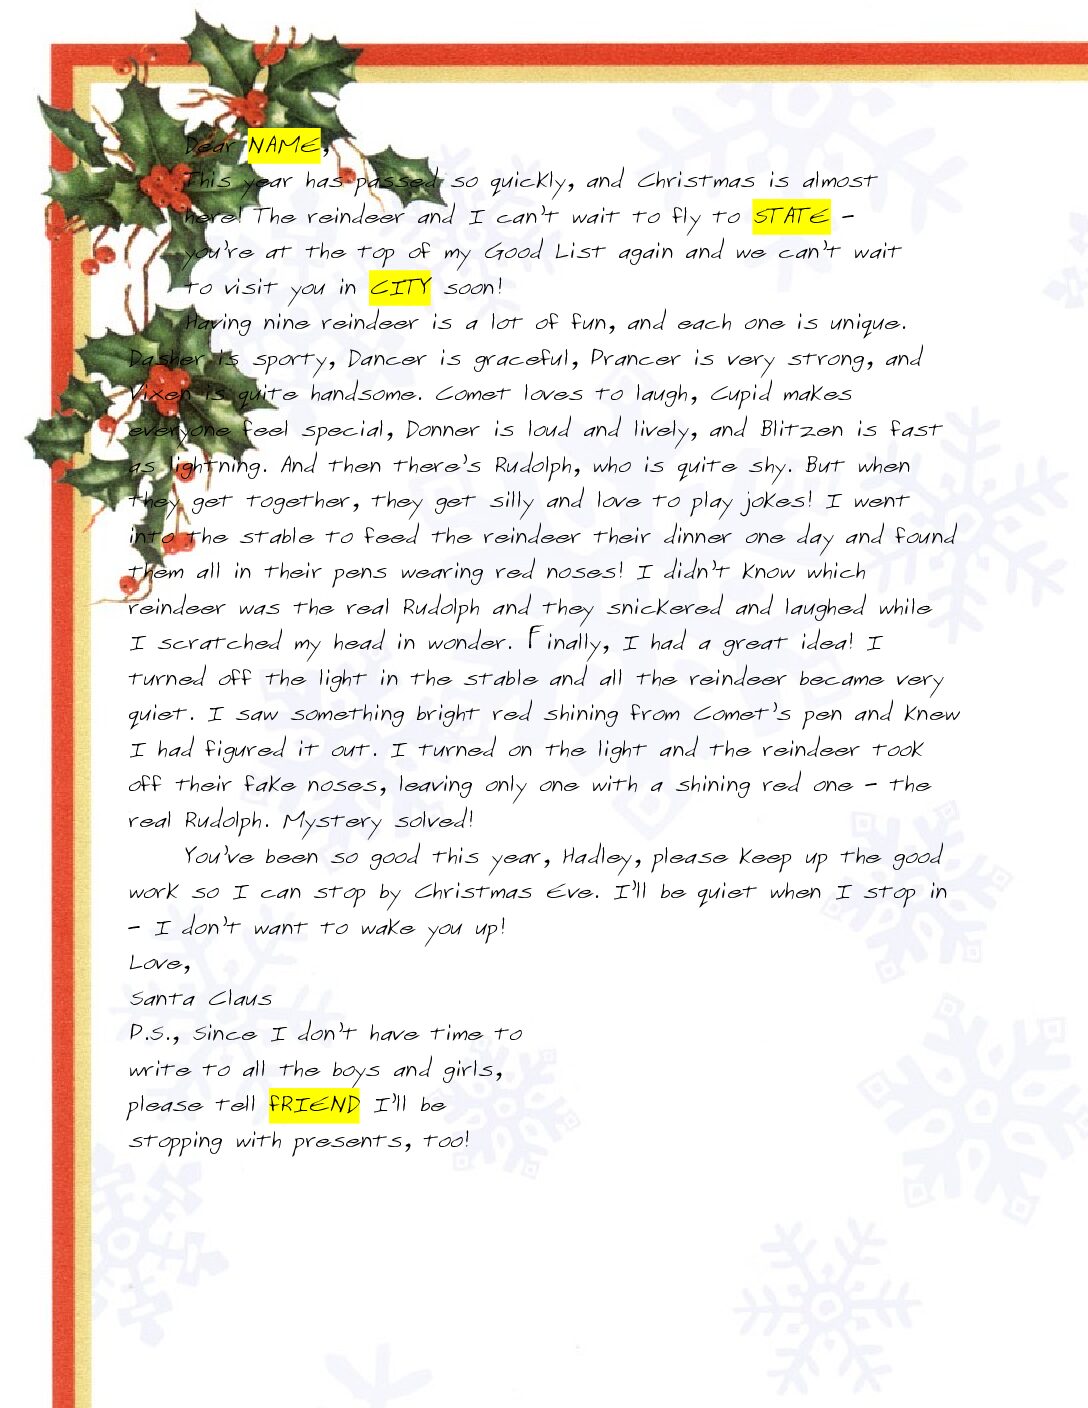 Dear NAME,
This year has passed so quickly, and Christmas is almost
here! The reindeer and I can't wait to fly to STATE -
you're at the top of my Good List again and we can't wait
to visit you in CITY soon!
Having nine reindeer is a lot of fun, and each one is unique.
Dasher is sporty, Dancer is graceful, Prancer is very strong, and
Vixen is quite handsome. Comet loves to laugh, Cupid makes
everyone feel special, Donner is loud and lively, and Blitzen is fast
as lightning. And then there's Rudolph, who is quite shy. But when
they get together, they get silly and love to play jokes! I went
into the stable to feed the reindeer their dinner one day and found
them all in their pens wearing red noses! I didn't know which
reindeer was the real Rudolph and they snickered and laughed while
I scratched my head in wonder. Finally, I had a great idea! I
turned off the light in the stable and all the reindeer became very
quiet. I saw something bright red shining from Comet's pen and knew
I had figured it out. I turned on the light and the reindeer took
off their fake noses, leaving only one with a shining red one - the
real Rudolph. Mystery solved!
You've been so good this year, Hadley, please keep up the good
work so I can stop by Christmas Eve. I'll be quiet when I stop in
- I don't want to wake you up!
Love,
Santa Claus
P.S., Since I don't have time to
write to all the boys and girls,
please tell FRIEND I'll be
stopping with presents, too!